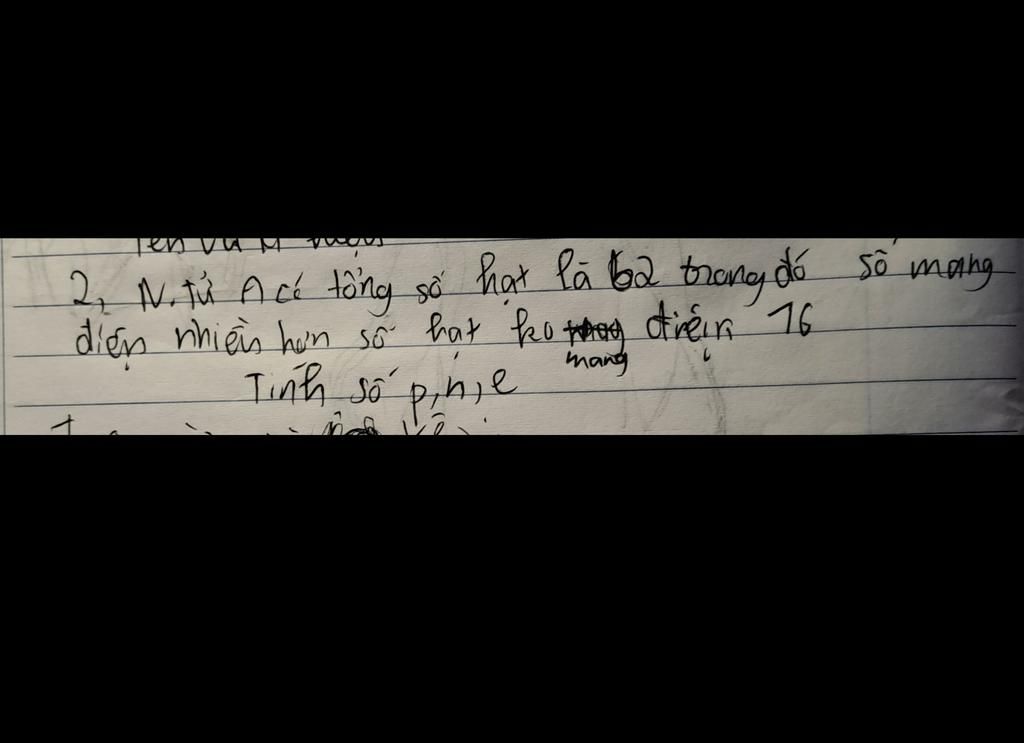 2, N.tử A có tổng số hạt là 52 trong đó số mang
điện nhiều hơn số hạt ko mang điện 16
Tính số p,n,e